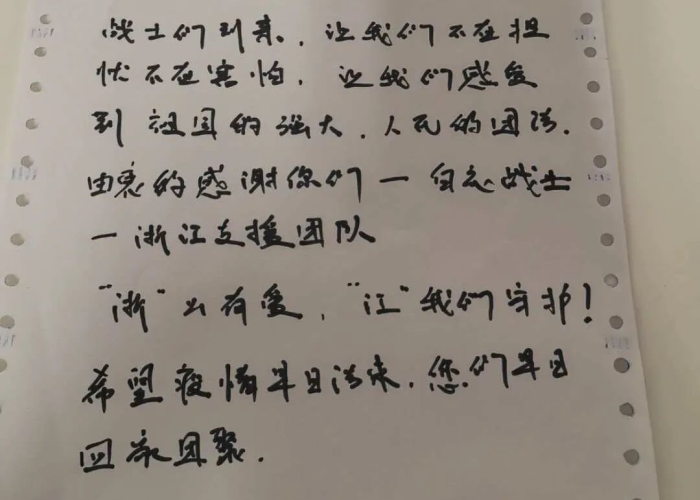 战士们到来，让我们不在担
忧不在害怕，让我们感受
到祖国的强大，人民的团结.
由衷的感谢你们一白衣战士
一浙江支援团队
“浙”里有爱，“江”我们守护！
希望疫情早日结束，您们早日
回家团聚.